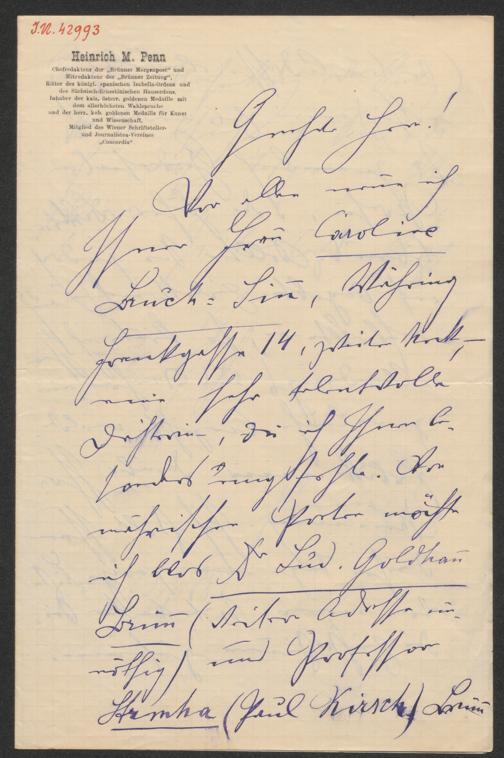 I.N. 42993
Heinrich M. Penn
Chefredakteur der „Brünner Morgenpost" und
Mitredakteur der „Brünner Zeitung",
Ritter des königl. spanischen Isabella-Ordens und
des Sächsisch-Ernestinischen Hausordens,
Inhaber der kais. österr. goldenen Medaille mit
dem allerhöchsten Wahlspruche
und der herz. kob. goldenen Medaille für Kunst
und Wissenschaft,
Mitglied des Wiener Schriftsteller-
und Journalisten-Vereines
„Concordia"
Geehrter Herr!
Vor allem nenne ich
Ihnen Frau Caroline
Bruch-Sinn, Währing
Frankgasse 14, zweiter Stock,
eine sehr talentvolle
Dichterin, die ich Ihnen be-
sonders empfehle. Von
mährischen Poeten möchte
ich blos Dr Lud. Goldhann
Brünn (weitere Adresse un-
nöthig) und Professor
(Paul Kirsch) Brünn